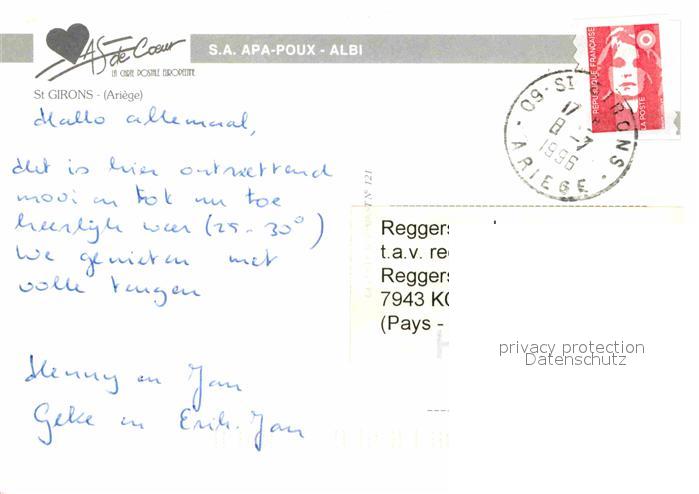 AS de Cœur
LA CARTE POSTALE EUROPÉENNE
S.A. APA-POUX - ALBI
St GIRONS - (Ariège)
Hallo allemaal,
Het is hier ontzettend
mooi en tot nu toe
heerlijk weer (25-30°)
We genieten met
volle teugen
Henny en Jan
Geke en Erik-Jan
RÉPUBLIQUE FRANÇAISE
LA POSTE
09-ST GIRONS
17
8-7
1996
ARIEGE
N° 121
Reggers
t.a.v. re
Reggers
7943 KC
(Pays -
privacy protection
Datenschutz